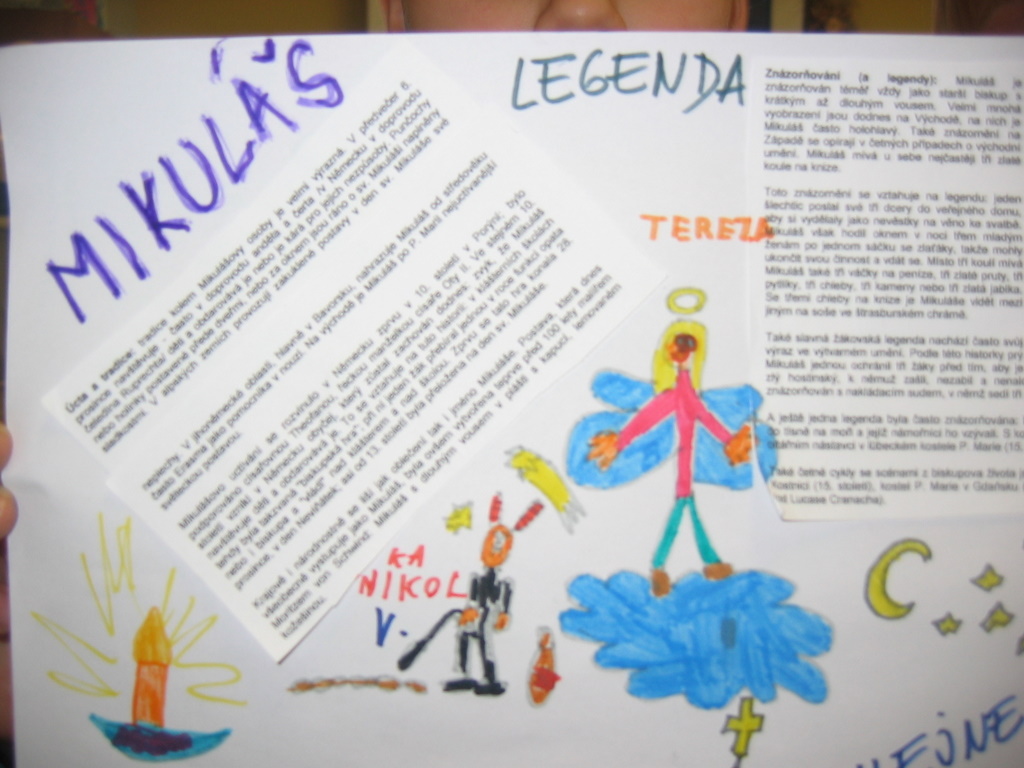 MIKULÁŠ
LEGENDA
Úcta a tradice: tradice kolem Mikulášovy osoby je velmi výrazná. V předvečer 6.
prosince navštěvuje - často v doprovodu anděla a čerta /v Německu v doprovodu
čeledína Ruprechta/ děti a obdarovává je nebo je kárá pro jejich nezpůsoby. Punčochy
nebo holínky postavené přede dveřmi, nebo za oknem jsou ráno o sv. Mikuláši naplněny
sladkostmi. V alpských zemích provozují zakuklené postavy v den sv. Mikuláše své
nejrochy. V jihoněmecké oblasti, hlavně v Bavorsku, nahrazuje Mikuláš od středověku
často Erasma jako pomocníka v nouzi. Na východě je Mikuláš po P. Marii nejuctívanější
světeckou postavou.
Mikulášovo uctívání se rozvinulo v Německu zprvu v 10. století v Porýní, bylo
podporováno císařovnou Theofanou, řeckou manželkou císaře Oty II. Ve stejném 10.
století vznikl v Německu obyčej, který zůstal zachován dodnes: zvyk, že Mikuláš
navštěvuje děti a obdarovává je. To se vztahuje na tuto historii: v klášterních školách
tendy byla takzvaná "biskupská hra"; při ní jeden žák přebíral jednou v roce funkci opata
nebo i biskupa a "vládl" nad klášterem a nad školou. Zprvu se tato hra konala 28.
prosince, v den Neviňátek, ale od 13. století byla přeložena na den sv. Mikuláše.
Krajově i národnostně se liší jak oblečení tak i jméno Mikuláše. Postava, která dnes
všeobecně vystupuje jako Mikuláš, byla ovšem vytvořena teprve před 100 lety malířem
Moritzem von Schwind: Mikuláš s dlouhým vousem v plášti s kapucí, lemovaném
kožešinou.
Znázorňování (a legendy): Mikuláš je
znázorňován téměř vždy jako starší biskup s
krátkým až dlouhým vousem. Velmi mnohá
vyobrazení jsou dodnes na Východě, na nich je
Mikuláš často holohlavý. Také znázornění na
Západě se opírají v četných případech o východní
umění. Mikuláš mívá u sebe nejčastěji tři zlaté
koule na knize.
Toto znázornění se vztahuje na legendu: jeden
šlechtic poslal své tři dcery do veřejného domu,
aby si vydělaly jako nevěstky na věno ke svatbě.
Mikuláš však hodil oknem v noci třem mladým
ženám po jednom sáčku se zlaťáky, takže mohly
ukončit svou činnost a vdát se. Místo tří koulí mívá
Mikuláš také tři váčky na peníze, tři zlaté pruty, tři
pytlíky, tři chleby, tři kameny nebo tři zlatá jablka.
Se třemi chleby na knize je Mikuláše vidět mezi
jiným na soše ve štrasburském chrámě.
Také slavná žákovská legenda nachází často svůj
výraz ve výtvarném umění. Podle této historky prý
Mikuláš jednou ochránil tři žáky před tím, aby je
zlý hostinský, k němuž zašli, nezabil a nenal
znázorňován s nakládacím sudem, v němž sedí tři
A ještě jedna legenda byla často znázorňována:
do tísně na moři a jejíž námořníci ho vzývali. S
oltářním nástavci v lübeckém kostele P. Marie (15.
Také četné cykly se scénami z biskupova života
Kostnici (15. století), kostel P. Marie v Gdaňsku
Lucase Cranacha).
TEREZA
KA
NIKOL
V.